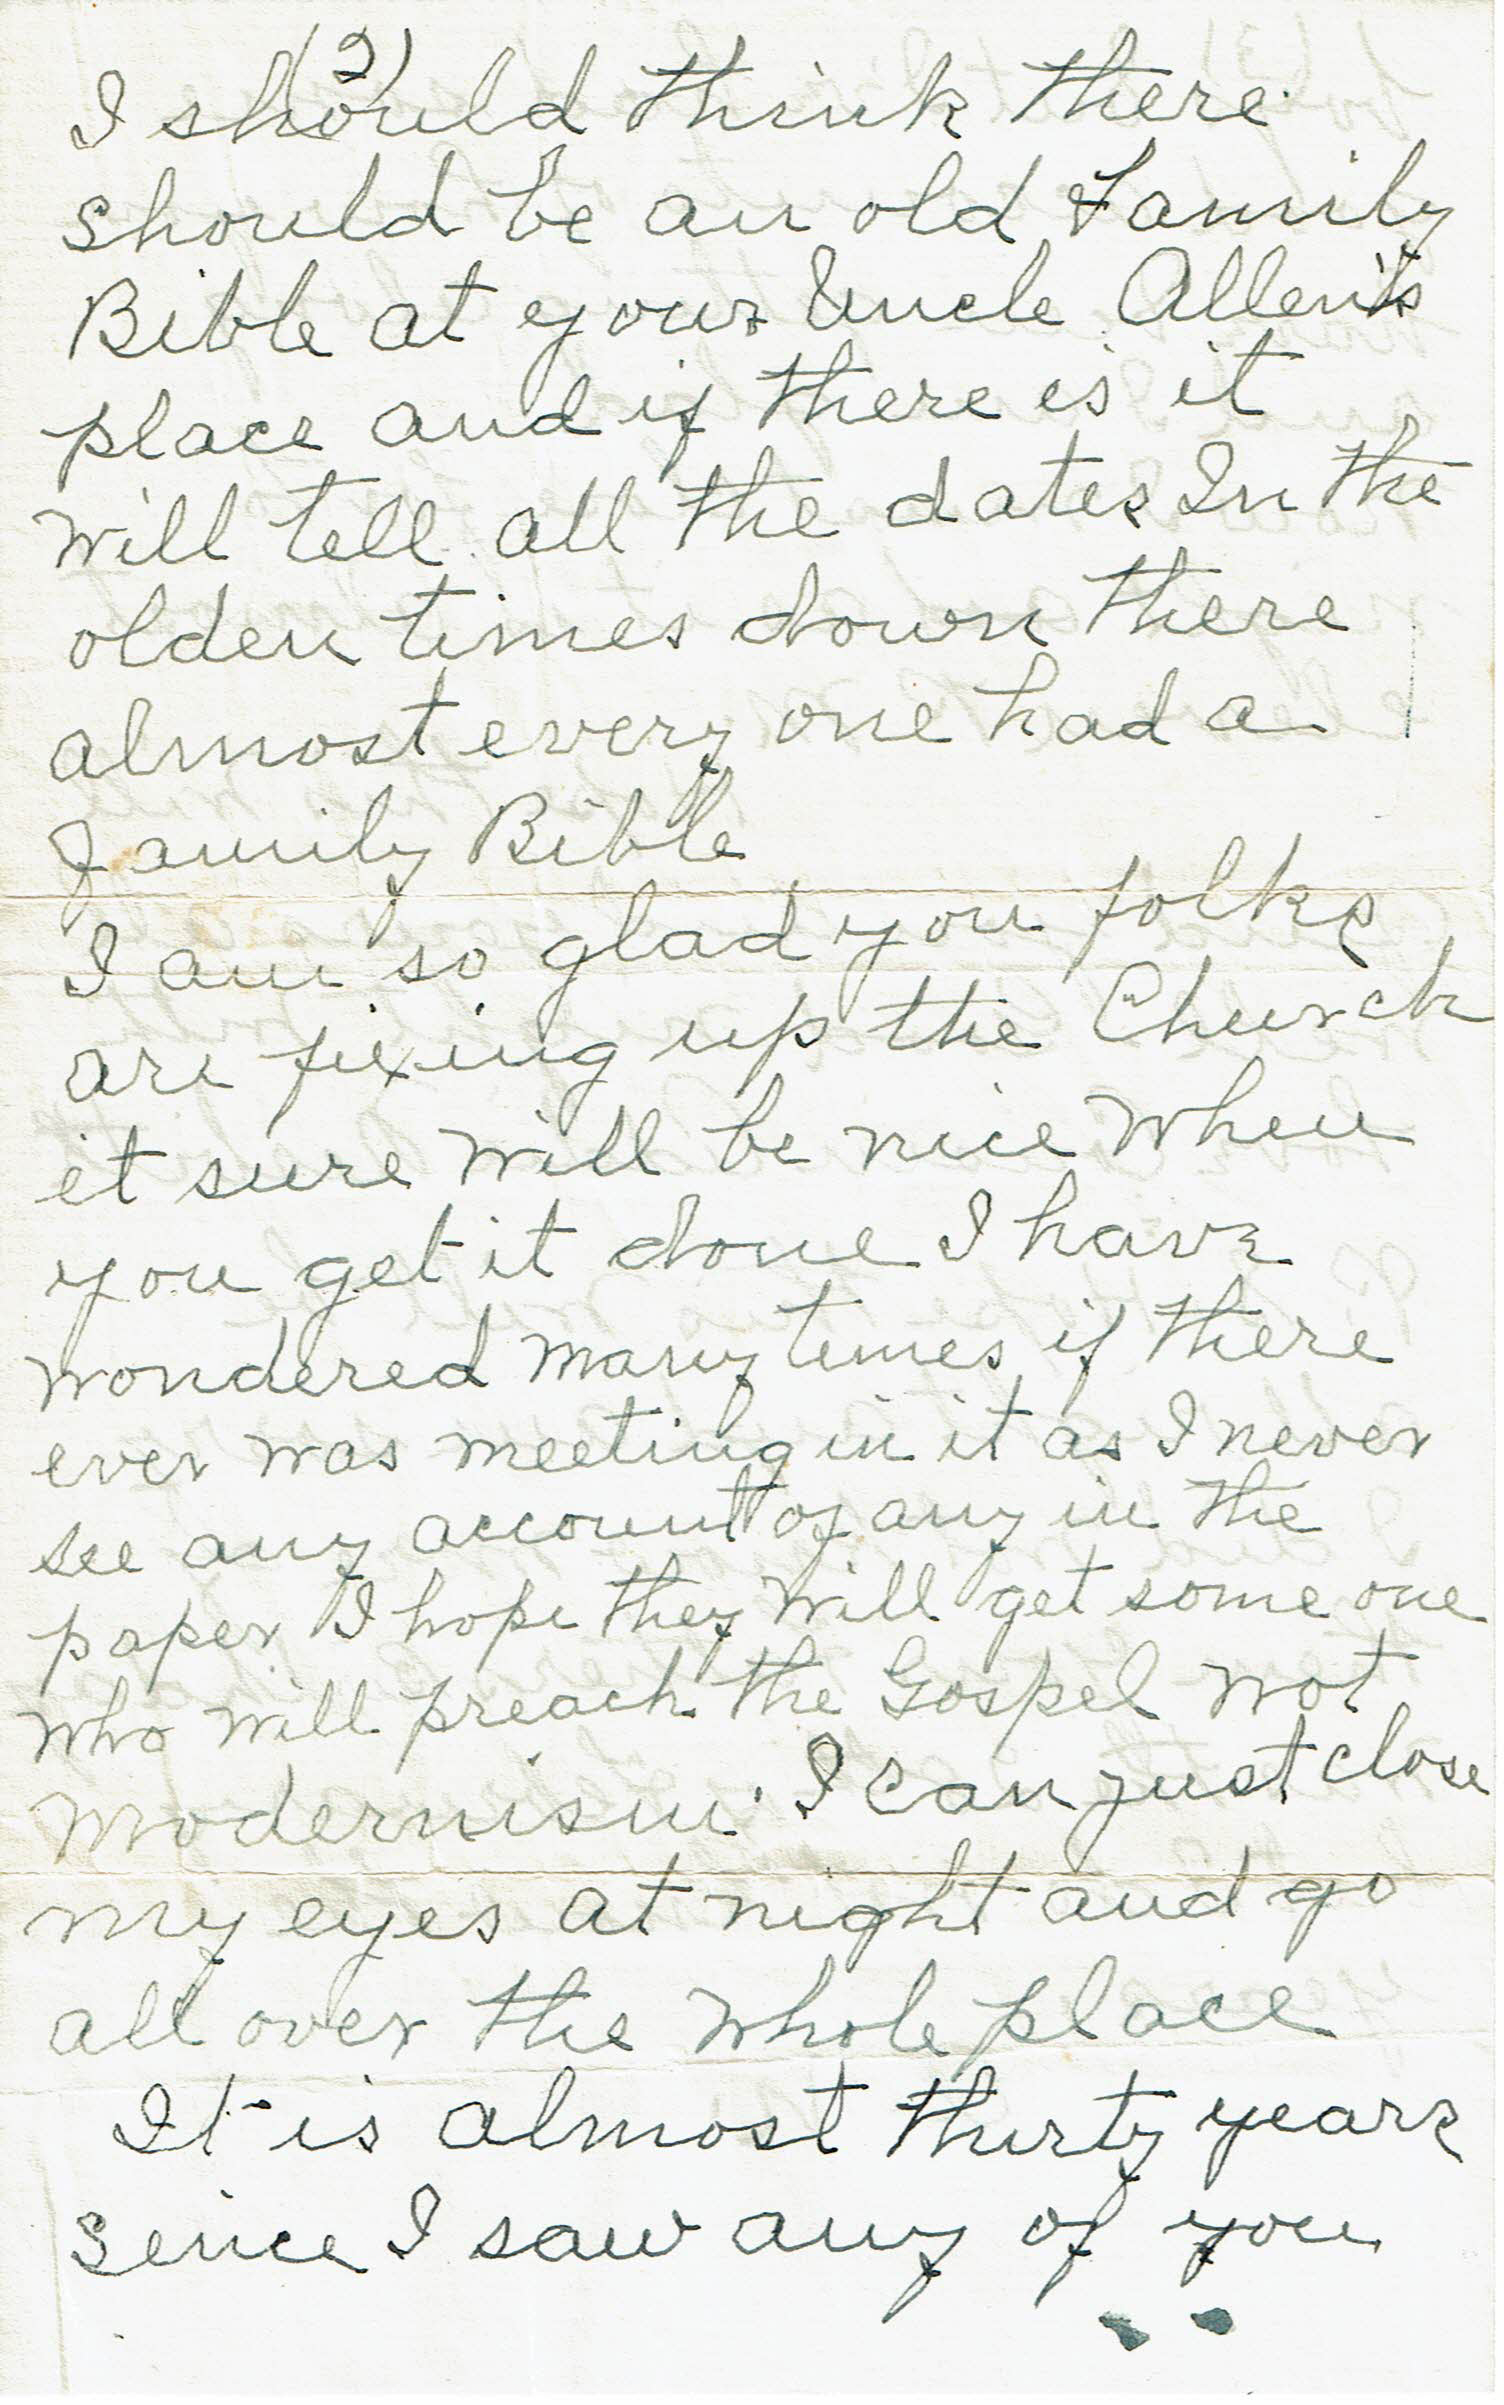 (2)
I should think there
should be an old Family
Bible at your Uncle Allen's
place and if there is it
will tell all the dates In the
olden times down there
almost every one had a
Family Bible
I am so glad you folks
are fixing up the Church
it sure will be nice when
you get it done I have
wondered many times if there
ever was meeting in it as I never
see any account of any in the
paper I hope they will get some one
who will preach the Gospel not
Modernism. I can just close
my eyes at night and go
all over the whole place
It is almost thirty years
since I saw any of you